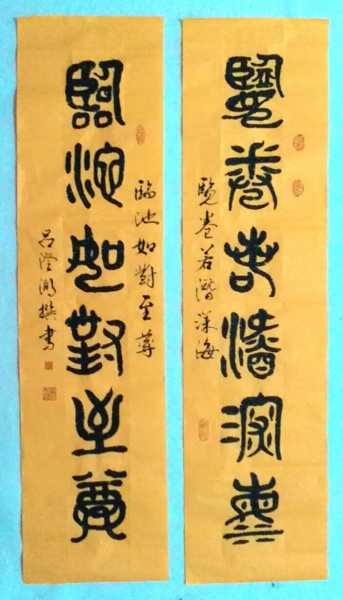 覽卷若潛深海
覽卷若潛深海
臨池如對至尊
臨池如對至尊
呂澄 撰書